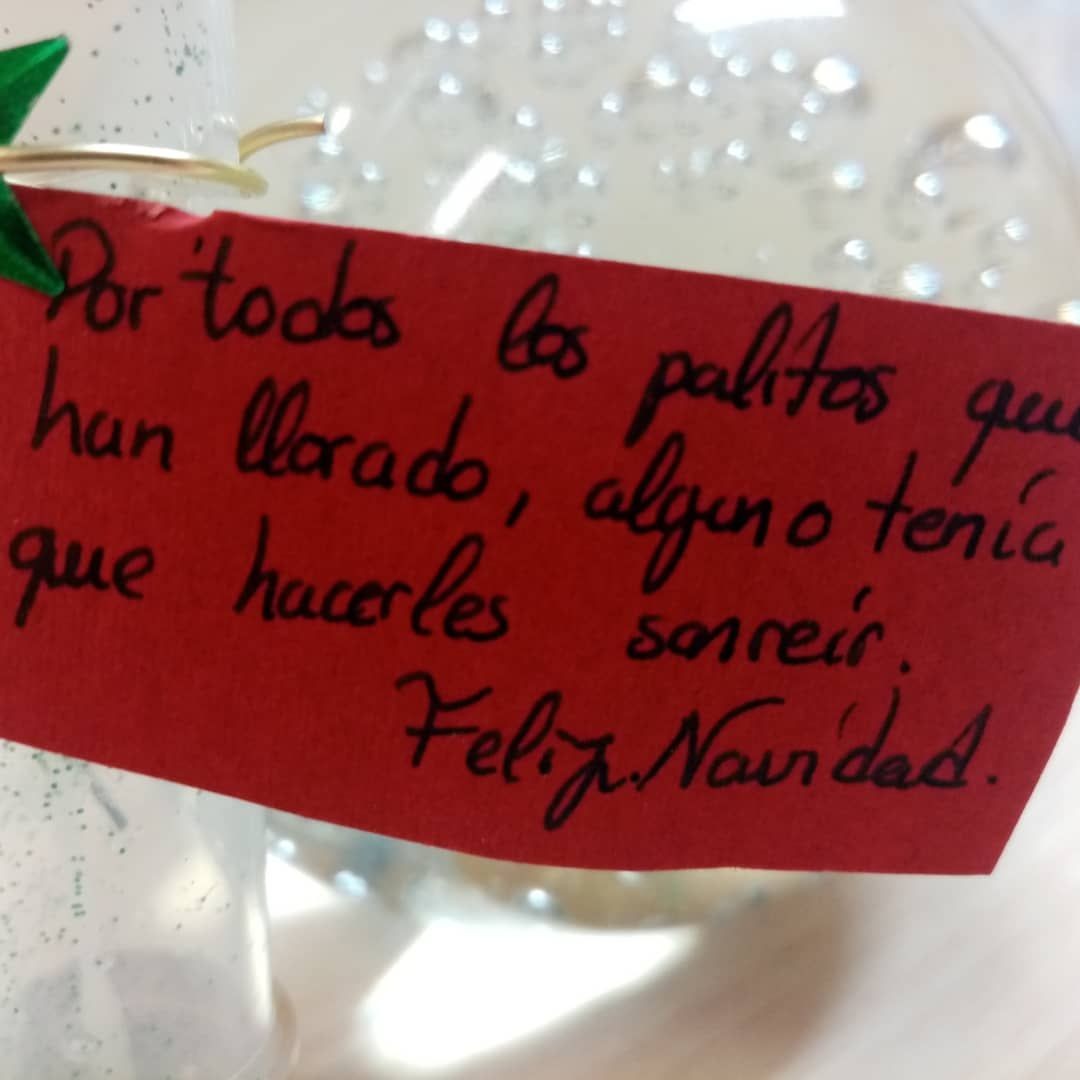 Por todos los palitos que
han llorado, alguno tenía
que hacerles sonreír.
Feliz Navidad.